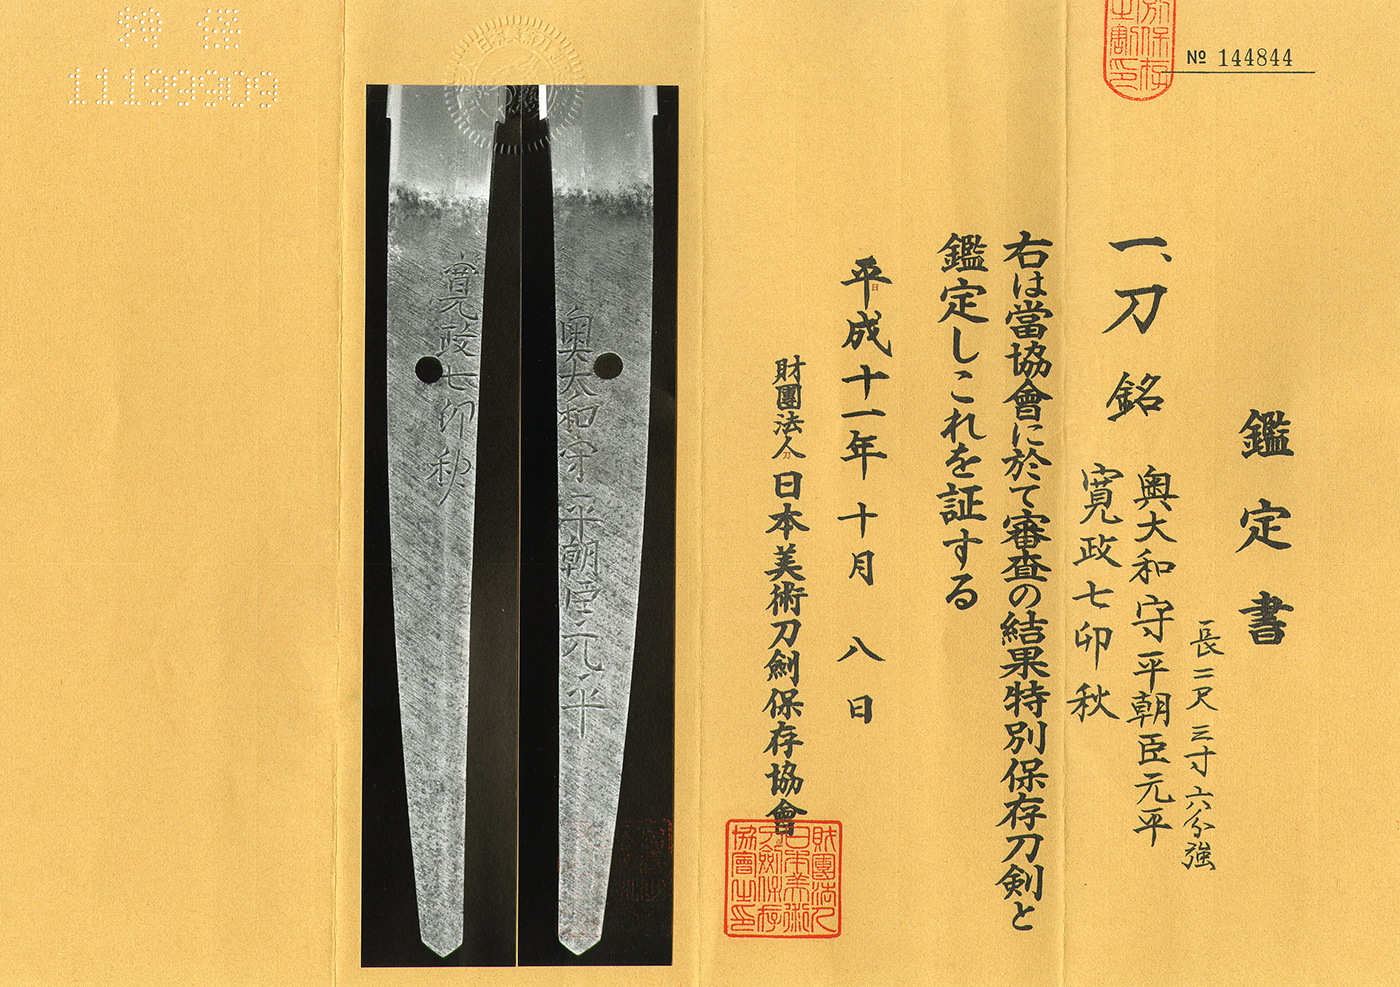 鑑定書
№ 144844
長二尺三寸六分強
一、刀 銘 奥大和守平朝臣元平
寛政七卯秋
右は當協會に於て審査の結果特別保存刀剣と
鑑定しこれを証する
平成十一年十月八日
財團法人日本美術刀劍保存協會
財團法人
日本美術
刀劍保存
協會之印
奥大和守平朝臣元平
寛政七卯秋
特保
11199909